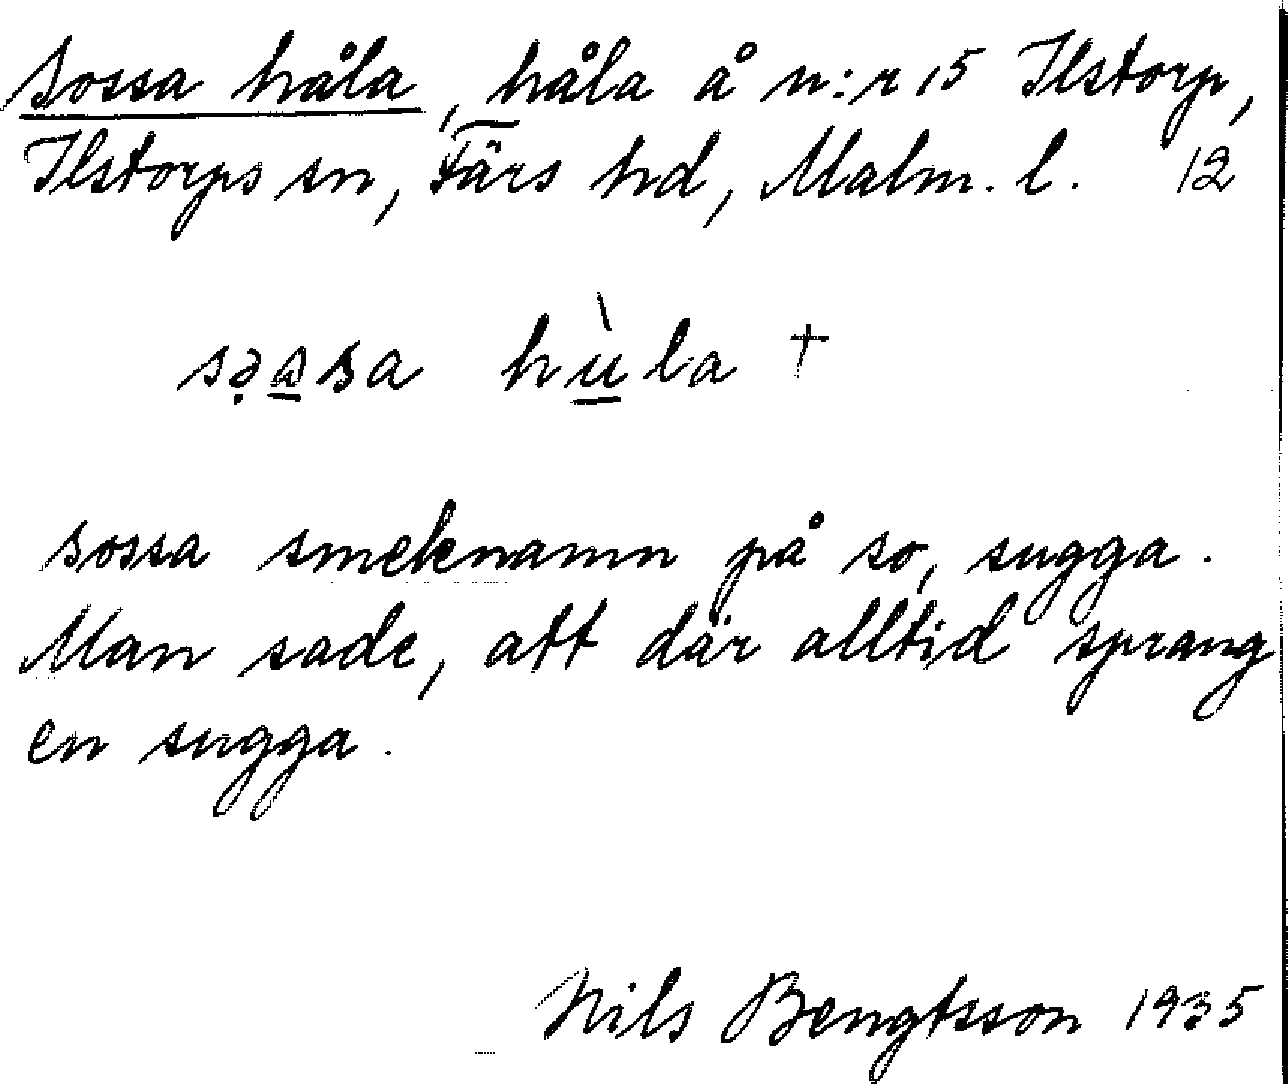 Sossa håla, håla å n:r 15 Ilstorp,
Ilstorps sn, Färs hd, Malm. l. 12
sə̣a̱sa hù̱la +
sossa smeknamn på so, sugga.
Man sade, att där alltid sprang
en sugga.
Nils Bengtsson 1935